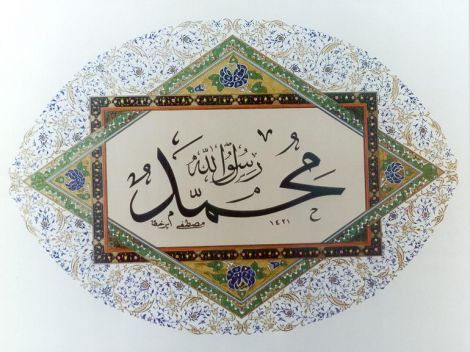 محمّد رسول اللّه
مصطفى
١٤٢١